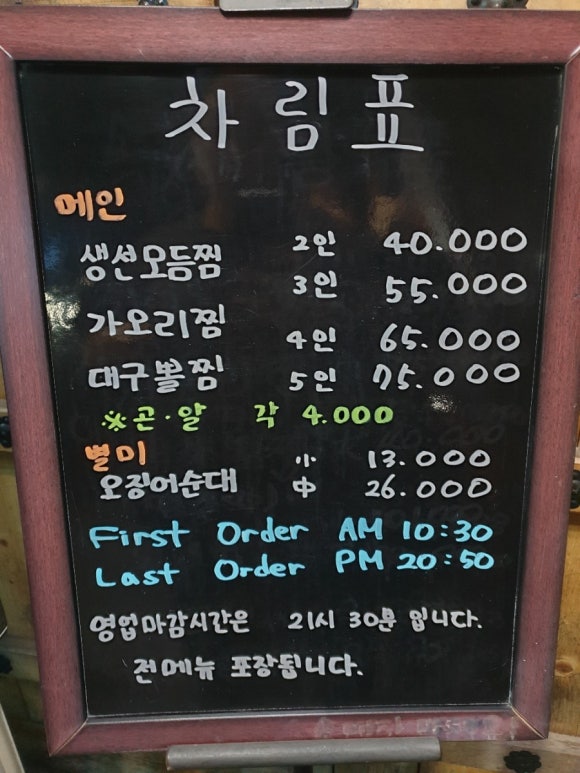 차림표
메인
생선모듬찜 2인 40.000
3인 55.000
가오리찜 4인 65.000
대구뽈찜 5인 75.000
※곤·알 각 4.000
별미
오징어순대 小 13.000
中 26.000
First Order AM 10:30
Last Order PM 20:50
영업마감시간은 21시 30분 입니다.
전메뉴 포장됩니다.